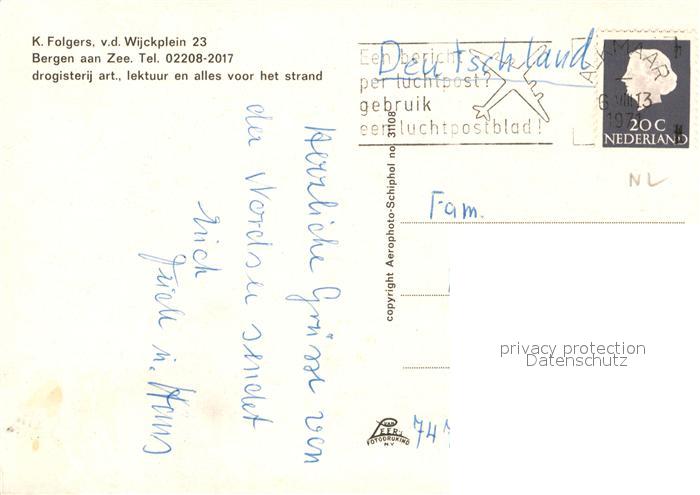 K. Folgers, v.d. Wijckplein 23
Bergen aan Zee. Tel. 02208-2017
drogisterij art., lektuur en alles voor het strand
Deutschland
Een bericht
per luchtpost?
gebruik
een luchtpostblad!
ALKMAAR
6 VIII 13
1971
20 C
NEDERLAND
NL
Herzliche Grüsse von
der Nordsee sendet
Erich
u. Hans
copyright Aerophoto-Schiphol no. 31108
Fam.
privacy protection
Datenschutz
VAN LEER'S
FOTODRUKIND
N.V.
747